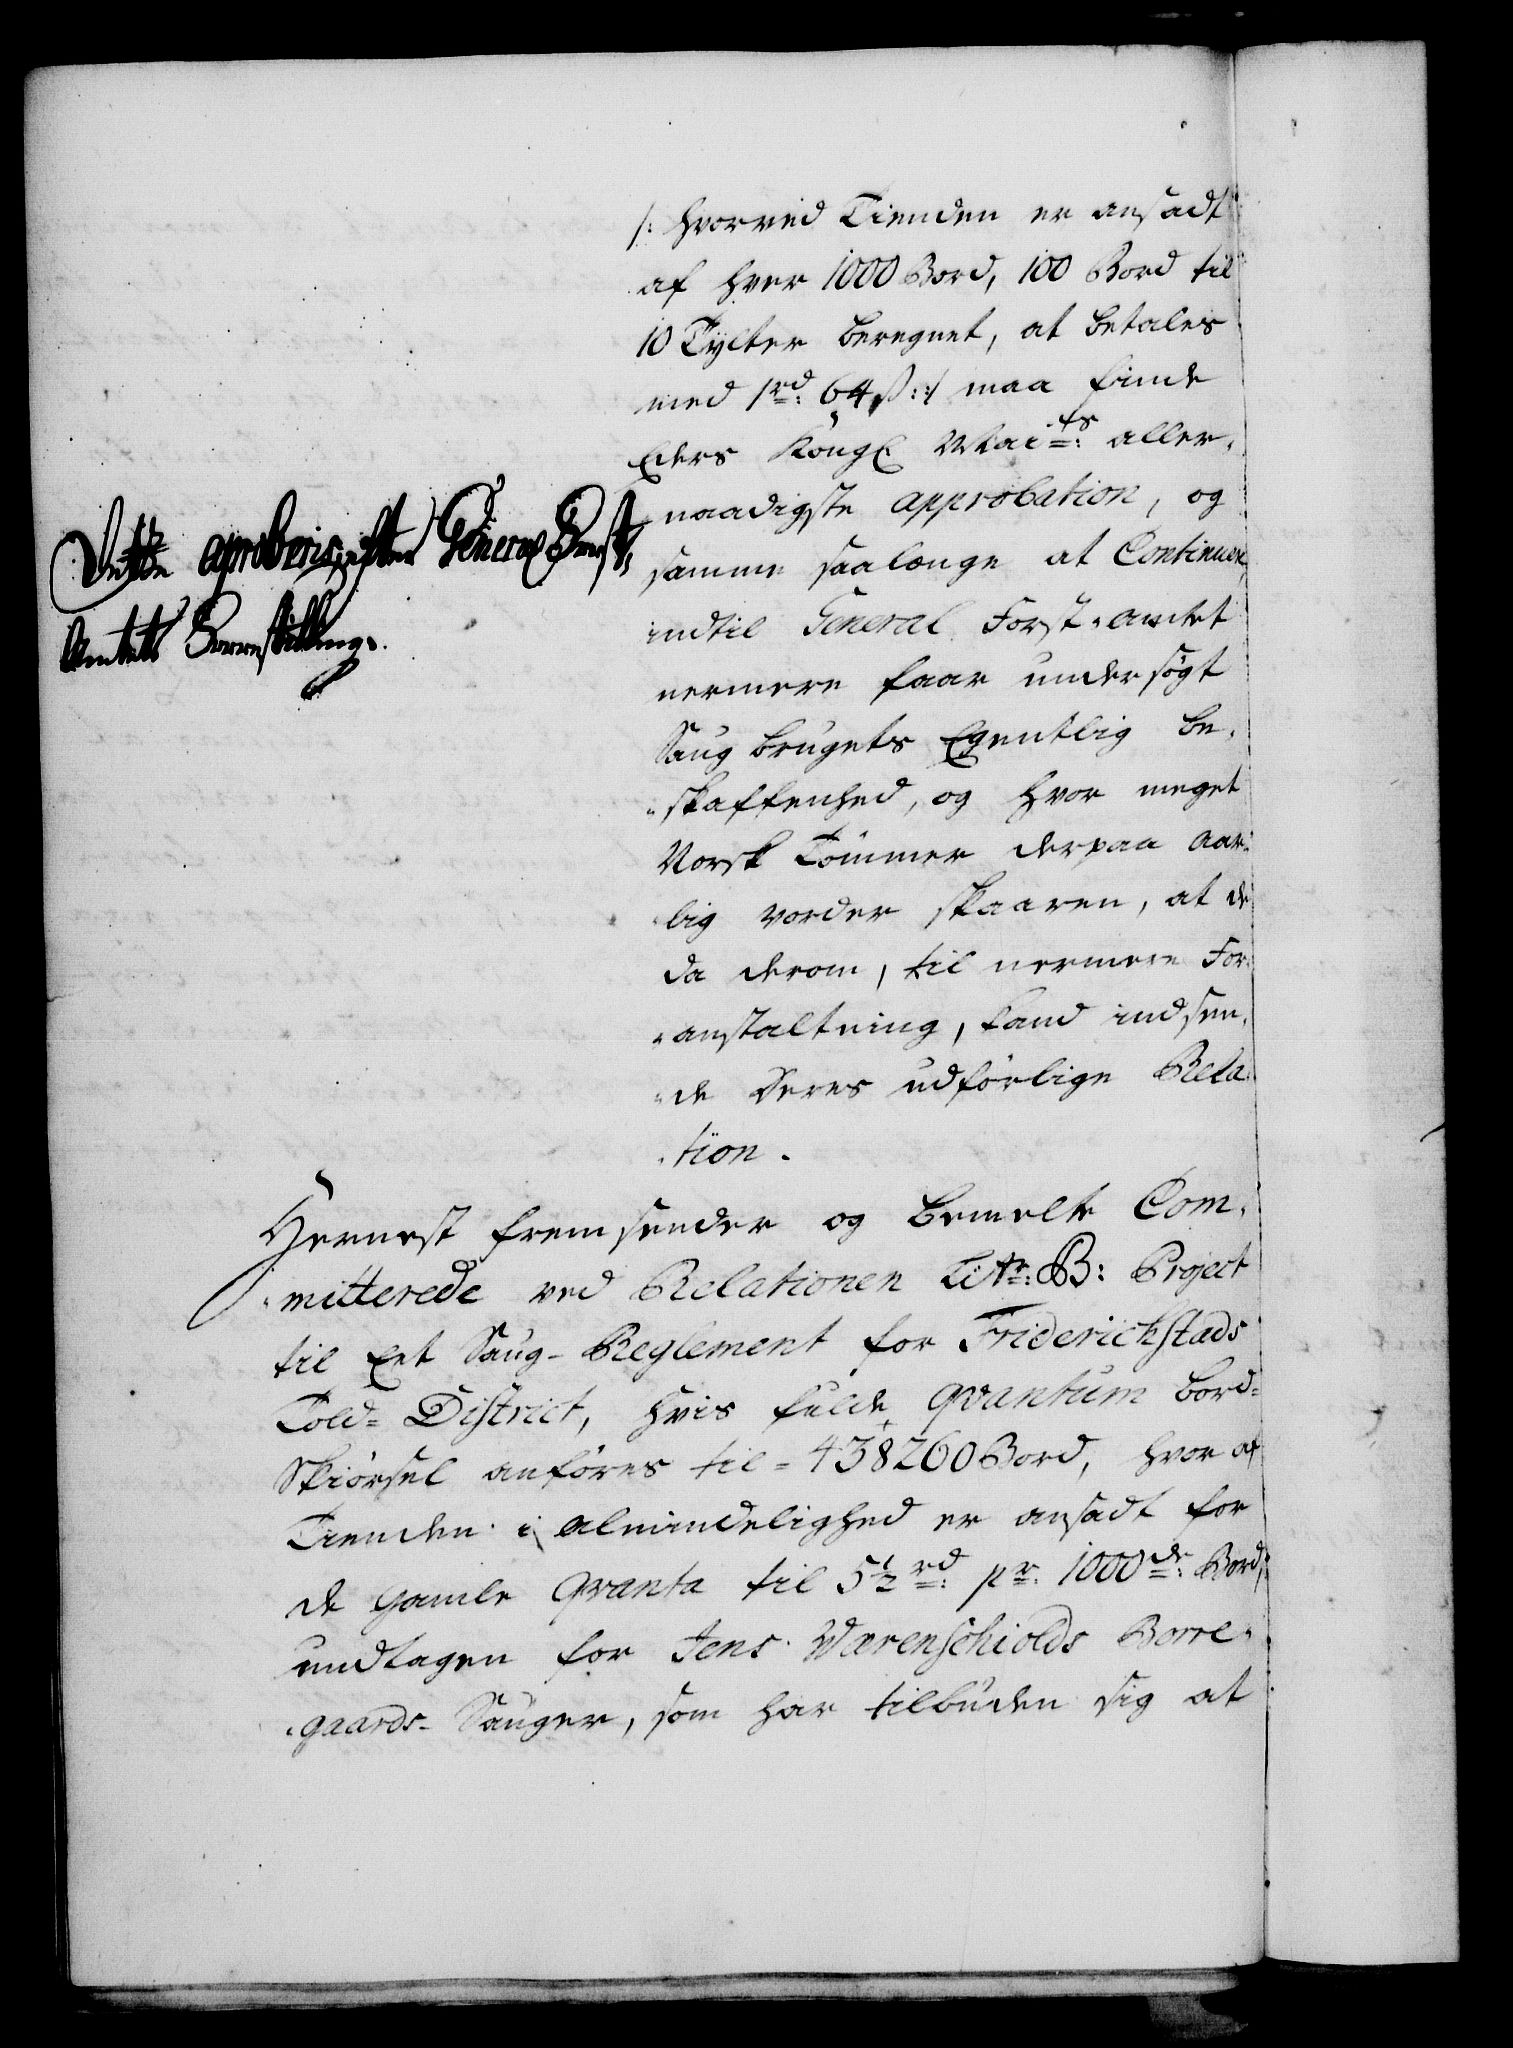 /: hvorved Tienden er ansadt
af hver 1000 Bord, 100 Bord til
10 Tylter beregnet, at betales
med 1 rd: 64 ß :/ maa finde
Eders Kongl. Maits: aller-
naadigste approbation, og
samme saalænge at Continuere
indtil General Forst-Amtet
nermere faar undersøgt
Saug brugets Egentlig be-
skaffenhed, og hvor meget
Norsk Tømmer derpaa aar-
lig vorder skaaren, at de
da derom, til nermere For-
anstaltning, kand indsen-
de Deres udførlige Rela-
tion.
Dette aproberis efter General Forst-
Amtets Forrestilling.
Hernest fremsender og bemelte Com-
mitterede ved Relationen Litr: B: Project
til Eet Saug-Reglement for Friderichstads
Told-District, hvis fulde qvantum bord-
Skiørsel anføres til - 438260 Bord, hvor af
Tienden i Almindelighed er ansadt for
de gamle qvanta til 5½ rd: pr: 1000de: Bord,
undtagen for Jens Wærenschiolds Borre-
gaards-Sauger, som har tilbuden sig at